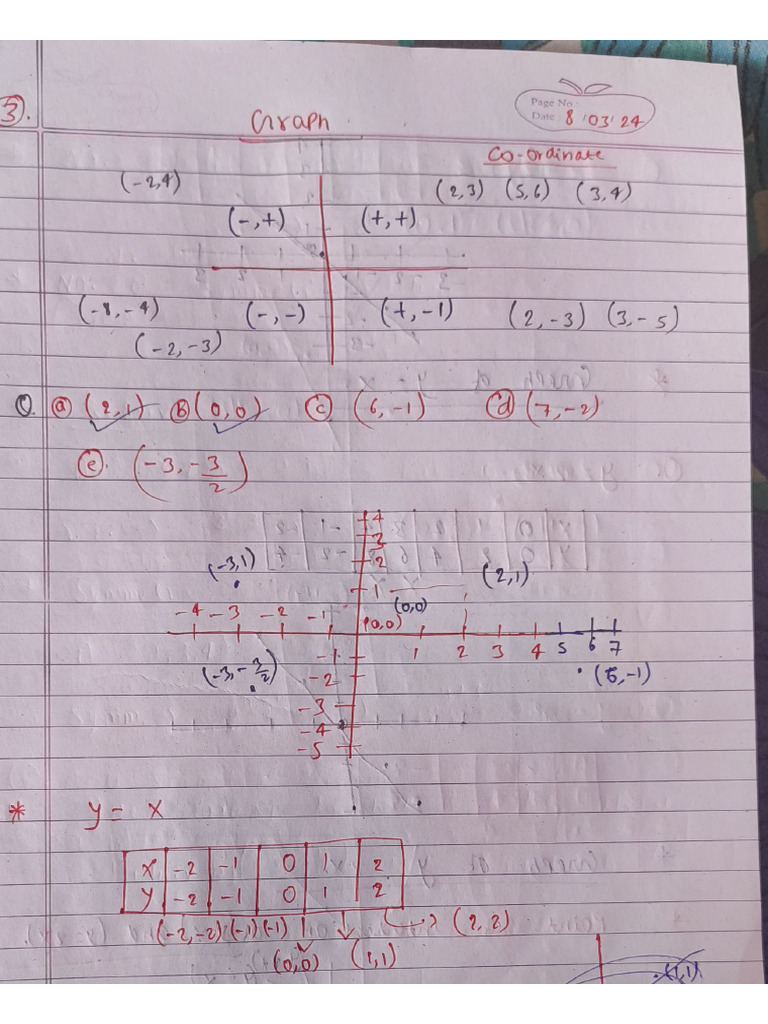 3.
Page No.
Graph
Date 8 03 24
Co-ordinate
(-2,4) (2,3) (5,6) (3,4)
(-,+) (+,+)
(-8,-4) (-,-) (+,-1) (2,-3) (3,-5)
(-2,-3)
Q. (a) (2,1) (B) (0,0) (c) (6,-1) (d) (7,-2)
(e). (-3,-3/2)
4
3
(-3,1) 2 (2,1)
1 (0,0)
-4 -3 -2 -1 (0,0)
-1 1 2 3 4 5 6 7
(-3,-3/2) -2 (6,-1)
-3
-4
-5
* y = x
x -2 -1 0 1 2
y -2 -1 0 1 2
(-2,-2) (-1)(-1) (2,2)
(0,0) (1,1)
(1,1)